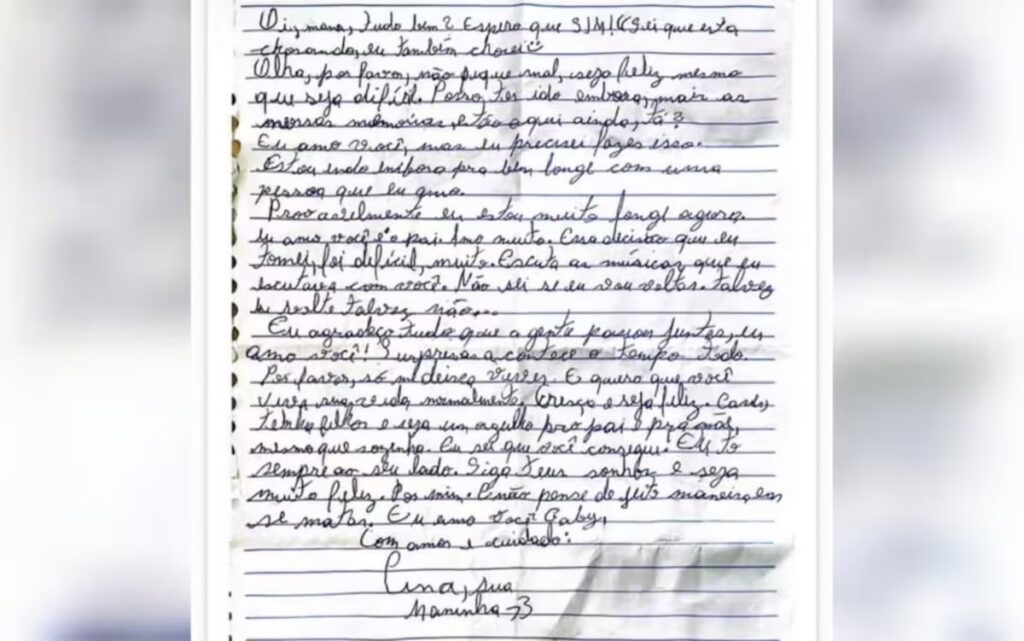 Oi, mana, tudo bem? Espero que SIM! (Sei que esta
chorando, eu também chorei
Olha, por favor, não fique mal, seja feliz mesmo
que seja difícil. Posso ter ido embora, mais as
nossas memórias, estão aqui ainda, tá?
Eu amo você, mas eu precisei fazer isso.
Estou indo embora pra bem longe com uma
pessoa que eu amo.
Provavelmente eu estou muito longe agora.
Eu amo você e o pai. Amo muito. Essa decisão que eu
tomei, foi difícil, muito. Escuta as músicas que eu
escutava com você. Não sei se eu vou voltar. Talvez
eu volte talvez não...
Eu agradeço tudo que a gente passou juntas, eu
amo você! Surpresas acontece o tempo todo.
Por favor, só me deixe viver. E quero que você
viva sua vida normalmente. Cresça e seja feliz. Case,
tenha filhos e seja um orgulho pro pai e pra mãe,
mesmo que sozinha. Eu sei que você consegue. Eu to
sempre ao seu lado. Siga teus sonhos e seja
muito feliz. Por mim. E não pense de jeito maneira em
se matar. Eu amo você Gaby,
Com amor e cuidado:
sua
Maninha <3